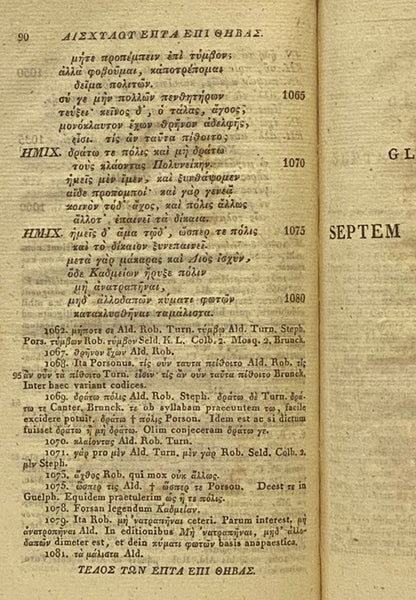 90 ΑΙΣΧΤΛΟΥ ΕΠΤΑ ΕΠΙ ΘΗΒΑΣ.
μήτε προπέμπειν ἐπὶ τύμβον;
ἀλλὰ φοβοῦμαι, κἀποτρέπομαι
δεῖμα πολιτῶν.
σύ γε μὴν πολλῶν πενθητήρων 1065
τεύξει· κεῖνος δ', ὁ τάλας, ἄγοος;
μονόκλαυτον ἔχων θρῆνον ἀδελφῆς,
εἶσι. τίς ἂν ταῦτα πίθοιτο;
ΗΜΙΧ. δράτω τε πόλις καὶ μὴ δράτω
τοὺς κλάοντας Πολυνείκην. 1070
ἡμεῖς μὲν ἴμεν, καὶ ξυνθάψομεν
αἵδε προπομποί· καὶ γὰρ γενεᾷ
κοινὸν τόδ' ἄχος, καὶ πόλις ἄλλως
ἄλλοτ' ἐπαινεῖ τὰ δίκαια.
ΗΜΙΧ. ἡμεῖς δ' ἅμα τῷδ', ὥσπερ τε πόλις 1075
καὶ τὸ δίκαιον ξυνεπαινεῖ.
μετὰ γὰρ μάκαρας καὶ Διὸς ἰσχὺν,
ὅδε Καδμείων ἤρυξε πόλιν
μὴ ἀνατραπῆναι,
μηδ' ἀλλοδαπῶν κύματι φωτῶν 1080
κατακλυσθῆναι ταμάλιστα.
1062. μήποτε σὲ Ald. Rob. Turn. τύμβῳ Ald. Turn. Steph.
Pors. τύμβων Rob. τύμβον Seld. K. L. Colb. 2. Mosq. 2. Brunck.
1067. θρῆνον ἔχων Ald. Rob.
1068. Ita Porsonus. τίς οὖν ταυτα πείθοιτο Ald. Rob. τίς
95 ἂν οὖν τὰ πίθοιτο Turn. εἶσιν· τίς ἂν οὖν ταῦτα πίθοιτο Brunck.
Inter haec variant codices.
1069. δράτω πόλις Ald. Rob. Steph. δράτω δὲ Turn. δρά-
τω τε Canter. Brunck. τε ob syllabam praecuntem τω, facile
excidere potuit. δράτω † πόλις Porson. Idem est ac si dictum
fuisset δράτω ἢ μὴ δράτω. Olim conjeceram δράτω γε.
1070. κλαίοντας Ald. Rob. Turn.
1071. γάρ προ μὲν Ald. Turn. μὲν γὰρ Rob. Seld. Colb. 2.
μὲν Steph.
1073. ἄχθος Rob. qui mox οὐκ ἄλλως.
1075. ὥσπερ τις Ald. † ὥσπερ τε Porson. Deest τε in
Guelph. Equidem praetulerim ὡς ἥ τε πόλις.
1078. Forsan legendum Καδμείαν.
1079. Ita Rob. μὴ 'νατραπῆναι ceteri. Parum interest, μὴ
ἀνατροπῆναι Ald. In editionibus Μὴ 'νατραπῆναι, μηδ' ἀλλο-
δαπῶν dimeter est, et dein κύματι φωτῶν basis anapaestica.
1081. τὰ μάλιστα Ald.
ΤΕΛΟΣ ΤΩΝ ΕΠΤΑ ΕΠΙ ΘΗΒΑΣ.
GL
SEPTEM